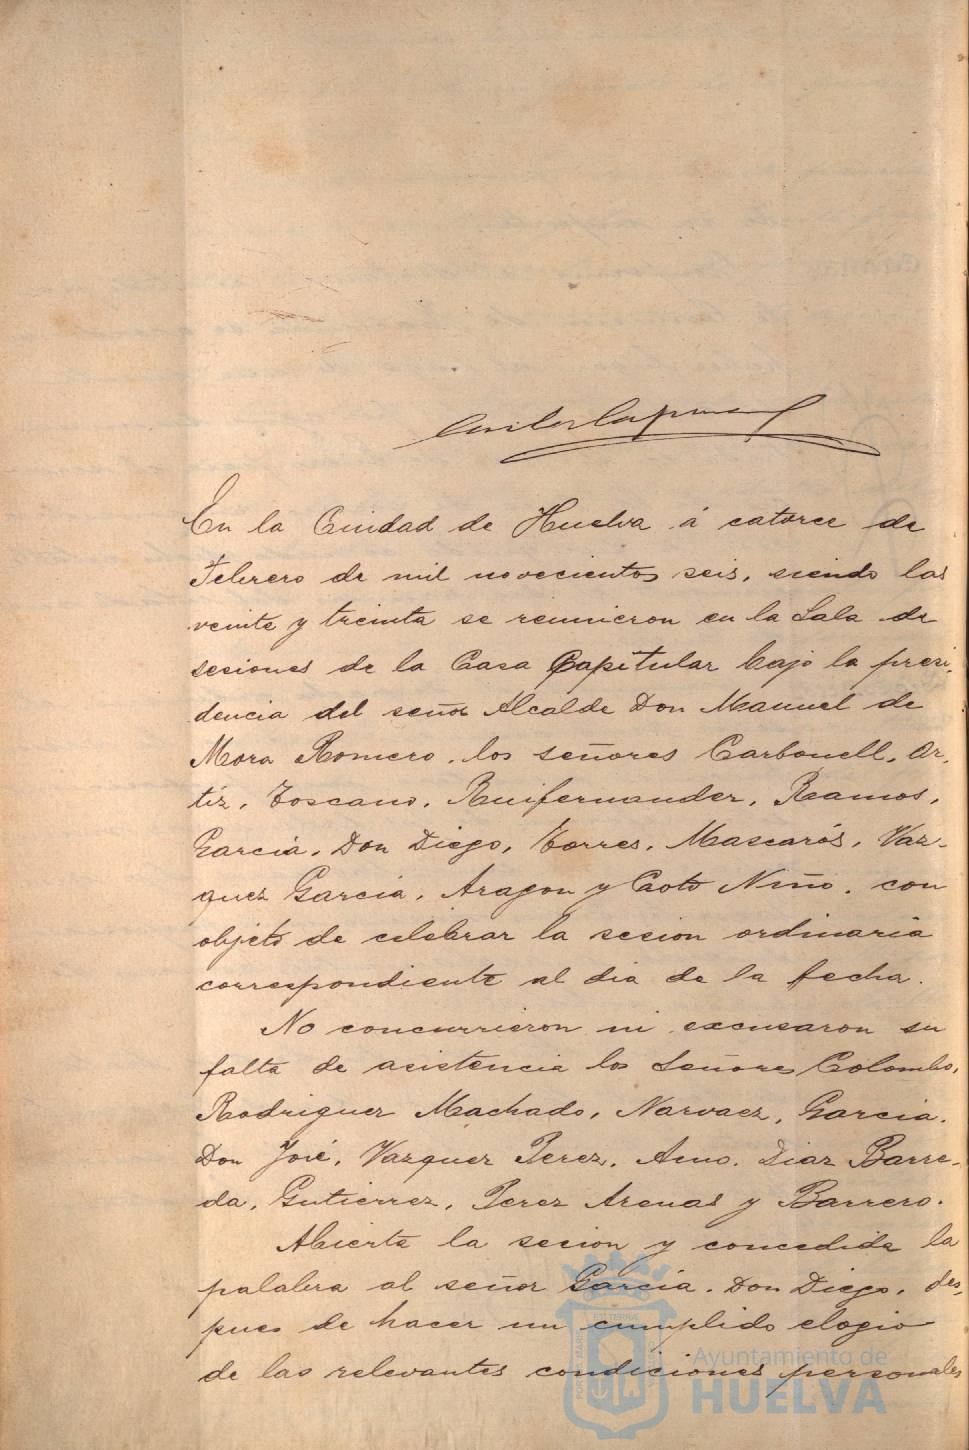 En la Ciudad de Huelva á catorce de
Febrero de mil novecientos seis, siendo las
veinte y treinta se reunieron en la Sala de
sesiones de la Casa Capitular bajo la presi-
dencia del señor Alcalde Don Manuel de
Mora Romero, los señores Carbonell, Or-
tiz, Toscano, Ruifernandez, Ramos,
Garcia, Don Diego, Torres, Mascarós, Vaz-
quez Garcia, Aragon y Coto Niño, con
objeto de celebrar la sesion ordinaria
correspondiente al dia de la fecha.
No concurrieron ni excusaron su
falta de asistencia los Señores Colombo,
Rodriguez Machado, Narvaez, Garcia,
Don José, Vazquez Perez, Amo, Diaz Barre-
da, Gutierrez, Perez Arenas y Barrero.
Abierta la sesion y concedida la
palabra al señor Garcia, Don Diego, des-
pues de hacer un cumplido elogio
de las relevantes condiciones personales
Ayuntamiento de
HUELVA